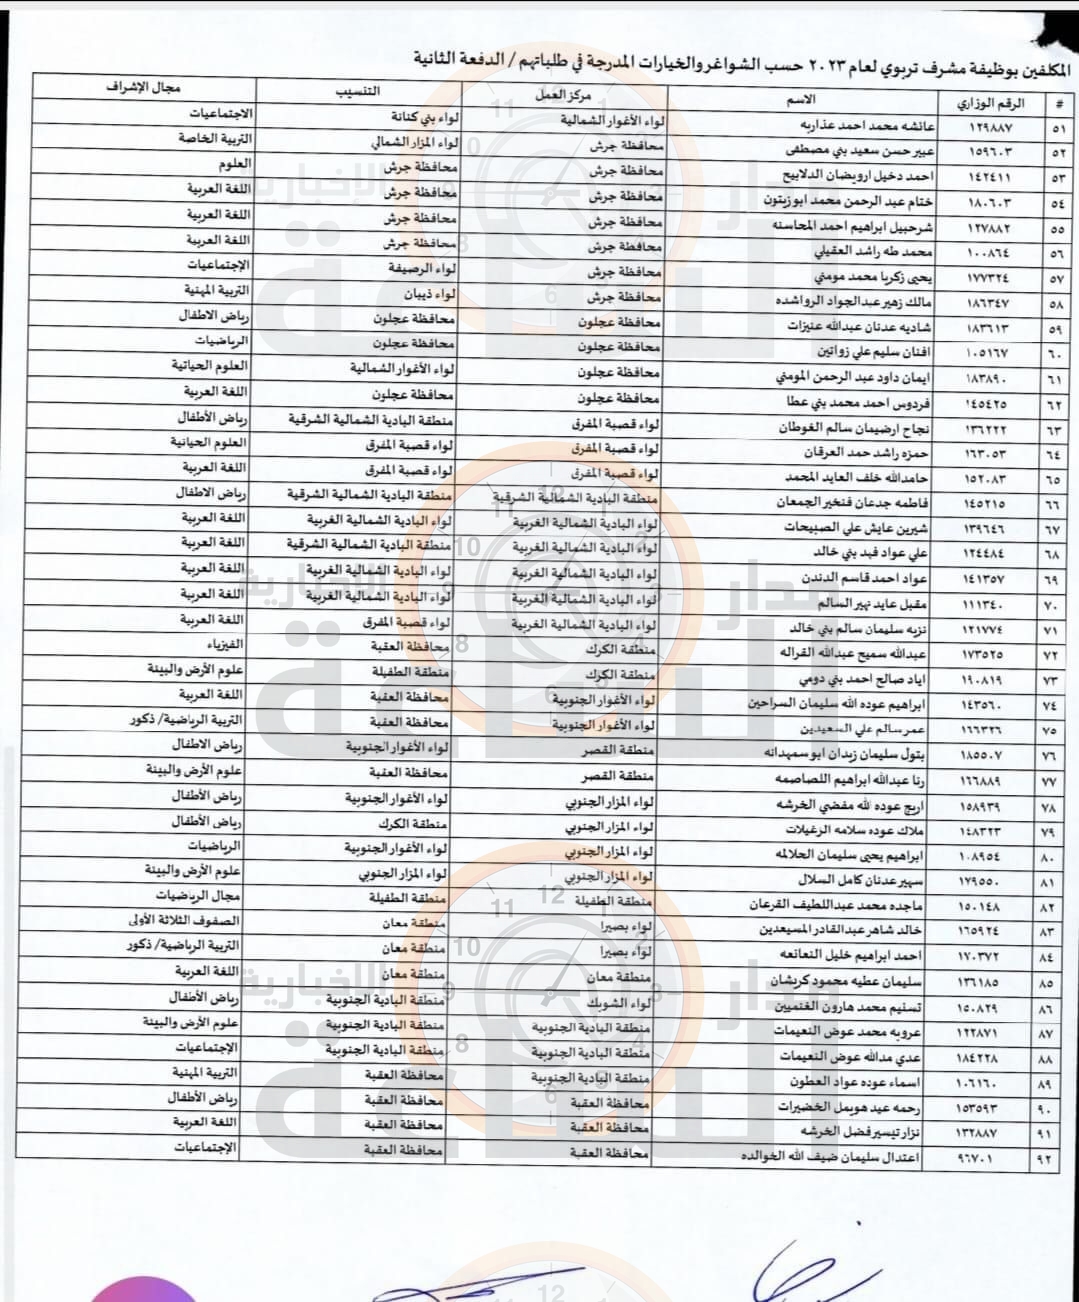 المكلفين بوظيفة مشرف تربوي لعام ٢٠٢٣ حسب الشواغر والخيارات المدرجة في طلباتهم / الدفعة الثانية
# الرقم الوزاري الاسم مركز العمل التنسيب مجال الإشراف
٥١ ١٢٩٨٨٧ عائشه محمد احمد عذاربه لواء الأغوار الشمالية لواء بني كنانة الاجتماعيات
٥٢ ١٥٩٦٠٣ عبير حسن سعيد بني مصطفى محافظة جرش لواء المزار الشمالي التربية الخاصة
٥٣ ١٤٢٤١١ احمد دخيل ارويضان الدلابيح محافظة جرش محافظة جرش العلوم
٥٤ ١٨٠٦٠٣ ختام عبد الرحمن محمد ابوزيتون محافظة جرش محافظة جرش اللغة العربية
٥٥ ١٢٧٨٨٢ شرحبيل ابراهيم احمد المحاسنه محافظة جرش محافظة جرش اللغة العربية
٥٦ ١٠٠٨٦٤ محمد طه راشد العقيلي محافظة جرش محافظة جرش اللغة العربية
٥٧ ١٧٧٣٢٤ يحيى زكريا محمد مومني محافظة جرش لواء الرصيفة الإجتماعيات
٥٨ ١٨٦٣٤٧ مالك زهير عبدالجواد الرواشده محافظة جرش لواء ذيبان التربية المهنية
٥٩ ١٨٣٦١٣ شاديه عدنان عبدالله عنيزات محافظة عجلون محافظة عجلون رياض الاطفال
٦٠ ١٠٥١٦٧ افنان سليم علي زواتين محافظة عجلون محافظة عجلون الرياضيات
٦١ ١٨٣٨٩٠ ايمان داود عبد الرحمن المومني محافظة عجلون لواء الأغوار الشمالية العلوم الحياتية
٦٢ ١٤٥٤٢٥ فردوس احمد محمد بني عطا محافظة عجلون محافظة عجلون اللغة العربية
٦٣ ١٣٦٢٢٢ نجاح ارضيمان سالم الغوطان لواء قصبة المفرق منطقة البادية الشمالية الشرقية رياض الأطفال
٦٤ ١٦٣٠٥٣ حمزه راشد حمد العرقان لواء قصبة المفرق لواء قصبة المفرق العلوم الحياتية
٦٥ ١٥٢٠٨٣ حامدالله خلف العايد المحمد لواء قصبة المفرق لواء قصبة المفرق اللغة العربية
٦٦ ١٤٥٢١٥ فاطمه جدعان فنخير الجمعان منطقة البادية الشمالية الشرقية منطقة البادية الشمالية الشرقية رياض الاطفال
٦٧ ١٣٩٦٤٦ شيرين عايش علي الصبيحات لواء البادية الشمالية الغربية لواء البادية الشمالية الغربية اللغة العربية
٦٨ ١٢٤٤٨٤ علي عواد فهد بني خالد لواء البادية الشمالية الغربية منطقة البادية الشمالية الشرقية اللغة العربية
٦٩ ١٤١٣٥٧ عواد احمد قاسم الدندن لواء البادية الشمالية الغربية لواء البادية الشمالية الغربية اللغة العربية
٧٠ ١١١٣٤٠ مقبل عايد نهير السالم لواء البادية الشمالية الغربية لواء البادية الشمالية الغربية اللغة العربية
٧١ ١٢١٧٧٤ نزيه سليمان سالم بني خالد لواء البادية الشمالية الغربية لواء قصبة المفرق اللغة العربية
٧٢ ١٧٣٥٢٥ عبدالله سميح عبدالله القراله منطقة الكرك محافظة العقبة الفيزياء
٧٣ ١٩٠٨١٩ اياد صالح احمد بني دومي منطقة الكرك منطقة الطفيلة علوم الأرض والبيئة
٧٤ ١٤٣٥٦٠ ابراهيم عوده الله سليمان السراحين لواء الأغوار الجنوبية محافظة العقبة اللغة العربية
٧٥ ١٦٦٣٢٦ عمر سالم علي السعيدين لواء الأغوار الجنوبية محافظة العقبة التربية الرياضية/ ذكور
٧٦ ١٨٥٥٠٧ بتول سليمان زيدان ابو سمهدانه منطقة القصر لواء الأغوار الجنوبية رياض الاطفال
٧٧ ١٦٦٨٨٩ رنا عبدالله ابراهيم اللصاصمه منطقة القصر محافظة العقبة علوم الأرض والبيئة
٧٨ ١٥٨٩٣٩ اريج عوده الله مفضي الخرشه لواء المزار الجنوبي لواء الأغوار الجنوبية رياض الأطفال
٧٩ ١٤٨٣٢٣ ملاك عوده سلامه الزغيلات لواء المزار الجنوبي منطقة الكرك رياض الأطفال
٨٠ ١٠٨٩٥٤ ابراهيم يحيى سليمان الحلالمه لواء المزار الجنوبي لواء الأغوار الجنوبية الرياضيات
٨١ ١٧٩٥٥٠ سهير عدنان كامل السلال لواء المزار الجنوبي لواء المزار الجنوبي علوم الأرض والبيئة
٨٢ ١٥٠١٤٨ ماجده محمد عبداللطيف القرعان منطقة الطفيلة منطقة الطفيلة مجال الرياضيات
٨٣ ١٦٥٩٢٤ خالد شاهر عبدالقادر المسيعدين لواء بصيرا منطقة معان الصفوف الثلاثة الأولى
٨٤ ١٧٠٣٧٢ احمد ابراهيم خليل النعانعه لواء بصيرا منطقة معان التربية الرياضية/ ذكور
٨٥ ١٣٦١٨٥ سليمان عطيه محمود كريشان منطقة معان منطقة معان اللغة العربية
٨٦ ١٥٠٨٢٩ تسنيم محمد هارون الغنميين لواء الشوبك منطقة البادية الجنوبية رياض الأطفال
٨٧ ١٢٢٨٧١ عروبه محمد عوض النعيمات منطقة البادية الجنوبية منطقة البادية الجنوبية علوم الأرض والبيئة
٨٨ ١٨٤٢٢٨ عدي مدالله عوض النعيمات منطقة البادية الجنوبية منطقة البادية الجنوبية الإجتماعيات
٨٩ ١٠٦١٦٠ اسماء عوده عواد العطون منطقة البادية الجنوبية محافظة العقبة التربية المهنية
٩٠ ١٥٣٥٩٣ رحمه عيد هويمل الخضيرات محافظة العقبة محافظة العقبة رياض الأطفال
٩١ ١٣٢٨٨٧ نزار تيسير فضل الخرشه محافظة العقبة محافظة العقبة اللغة العربية
٩٢ ٩٦٧٠١ اعتدال سليمان ضيف الله الخوالده محافظة العقبة محافظة العقبة الإجتماعيات
مدار الساعة الإخبارية